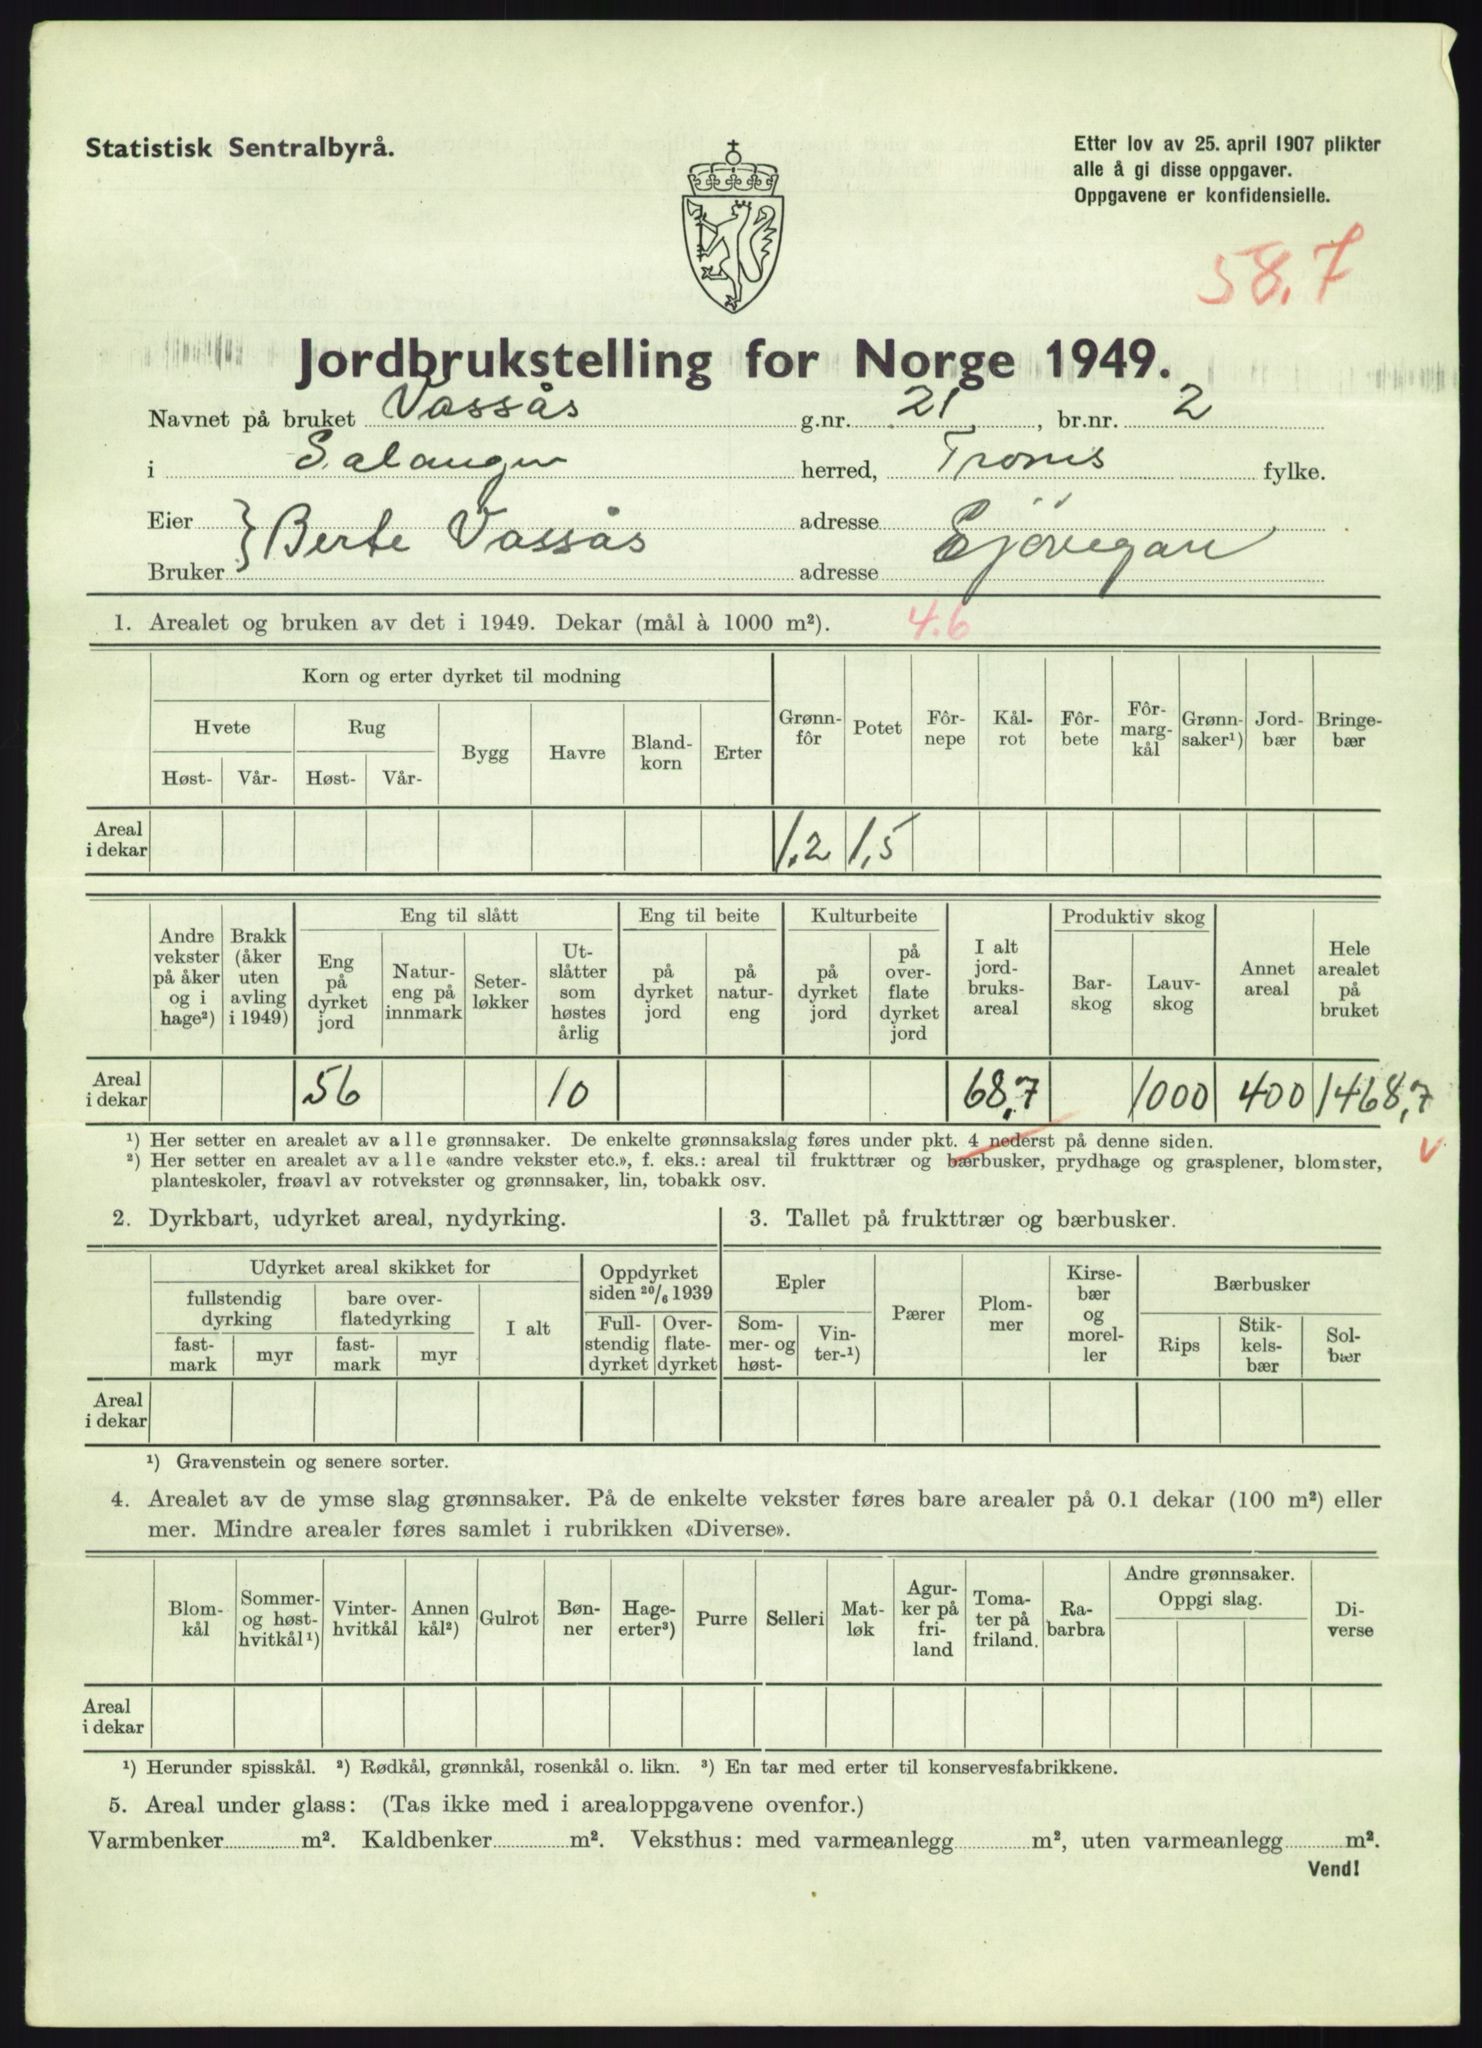 Statistisk Sentralbyrå.
Etter lov av 25. april 1907 plikter
alle å gi disse oppgaver.
Oppgavene er konfidensielle.
58,7
Jordbrukstelling for Norge 1949.
Navnet på bruket Vassås g.nr. 21, br.nr. 2
i Salangen herred, Troms fylke.
Eier } Berte Vassås adresse Sjøvegan
Bruker adresse
1. Arealet og bruken av det i 1949. Dekar (mål à 1000 m²). 4.6
Korn og erter dyrket til modning
Hvete Rug Bygg Havre Bland-korn Erter Grønn-fôr Potet Fôr-nepe Kål-rot Fôr-bete Fôr-marg-kål Grønn-saker¹) Jord-bær Bringe-bær
Høst- Vår- Høst- Vår-
Areal i dekar 1,2 1,5
Eng til slått Eng til beite Kulturbeite Produktiv skog
Andre vekster på åker og i hage²) Brakk (åker uten avling i 1949) Eng på dyrket jord Natur-eng på innmark Seter-løkker Ut-slåtter som høstes årlig på dyrket jord på natur-eng på dyrket jord på over-flate dyrket jord I alt jord-bruks-areal Bar-skog Lauv-skog Annet areal Hele arealet på bruket
Areal i dekar 56 10 68,7 1000 400 1468,7
v
¹) Her setter en arealet av alle grønnsaker. De enkelte grønnsakslag føres under pkt. 4 nederst på denne siden.
²) Her setter en arealet av alle «andre vekster etc.», f. eks.: areal til frukttrær og bærbusker, prydhage og grasplener, blomster,
planteskoler, frøavl av rotvekster og grønnsaker, lin, tobakk osv.
2. Dyrkbart, udyrket areal, nydyrking.
Udyrket areal skikket for Oppdyrket siden 20/6 1939
fullstendig dyrking bare over-flatedyrking I alt Full-stendig dyrket Over-flate-dyrket
fast-mark myr fast-mark myr
Areal i dekar
3. Tallet på frukttrær og bærbusker.
Epler Pærer Plom-mer Kirse-bær og morel-ler Bærbusker
Som-mer- og høst- Vin-ter-¹) Rips Stik-kels-bær Sol-bær
¹) Gravenstein og senere sorter.
4. Arealet av de ymse slag grønnsaker. På de enkelte vekster føres bare arealer på 0.1 dekar (100 m²) eller
mer. Mindre arealer føres samlet i rubrikken «Diverse».
Blom-kål Sommer- og høst-hvitkål¹) Vinter-hvitkål Annen kål²) Gulrot Bøn-ner Hage-erter³) Purre Selleri Mat-løk Agur-ker på fri-land Toma-ter på friland. Ra-barbra Andre grønnsaker. Oppgi slag. Di-verse
Areal i dekar
¹) Herunder spisskål. ²) Rødkål, grønnkål, rosenkål o. likn. ³) En tar med erter til konservesfabrikkene.
5. Areal under glass: (Tas ikke med i arealoppgavene ovenfor.)
Varmbenker m². Kaldbenker m². Veksthus: med varmeanlegg m², uten varmeanlegg m².
Vend!